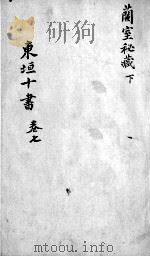 蘭室秘藏 下
東垣十書 卷七
www.toutu.com